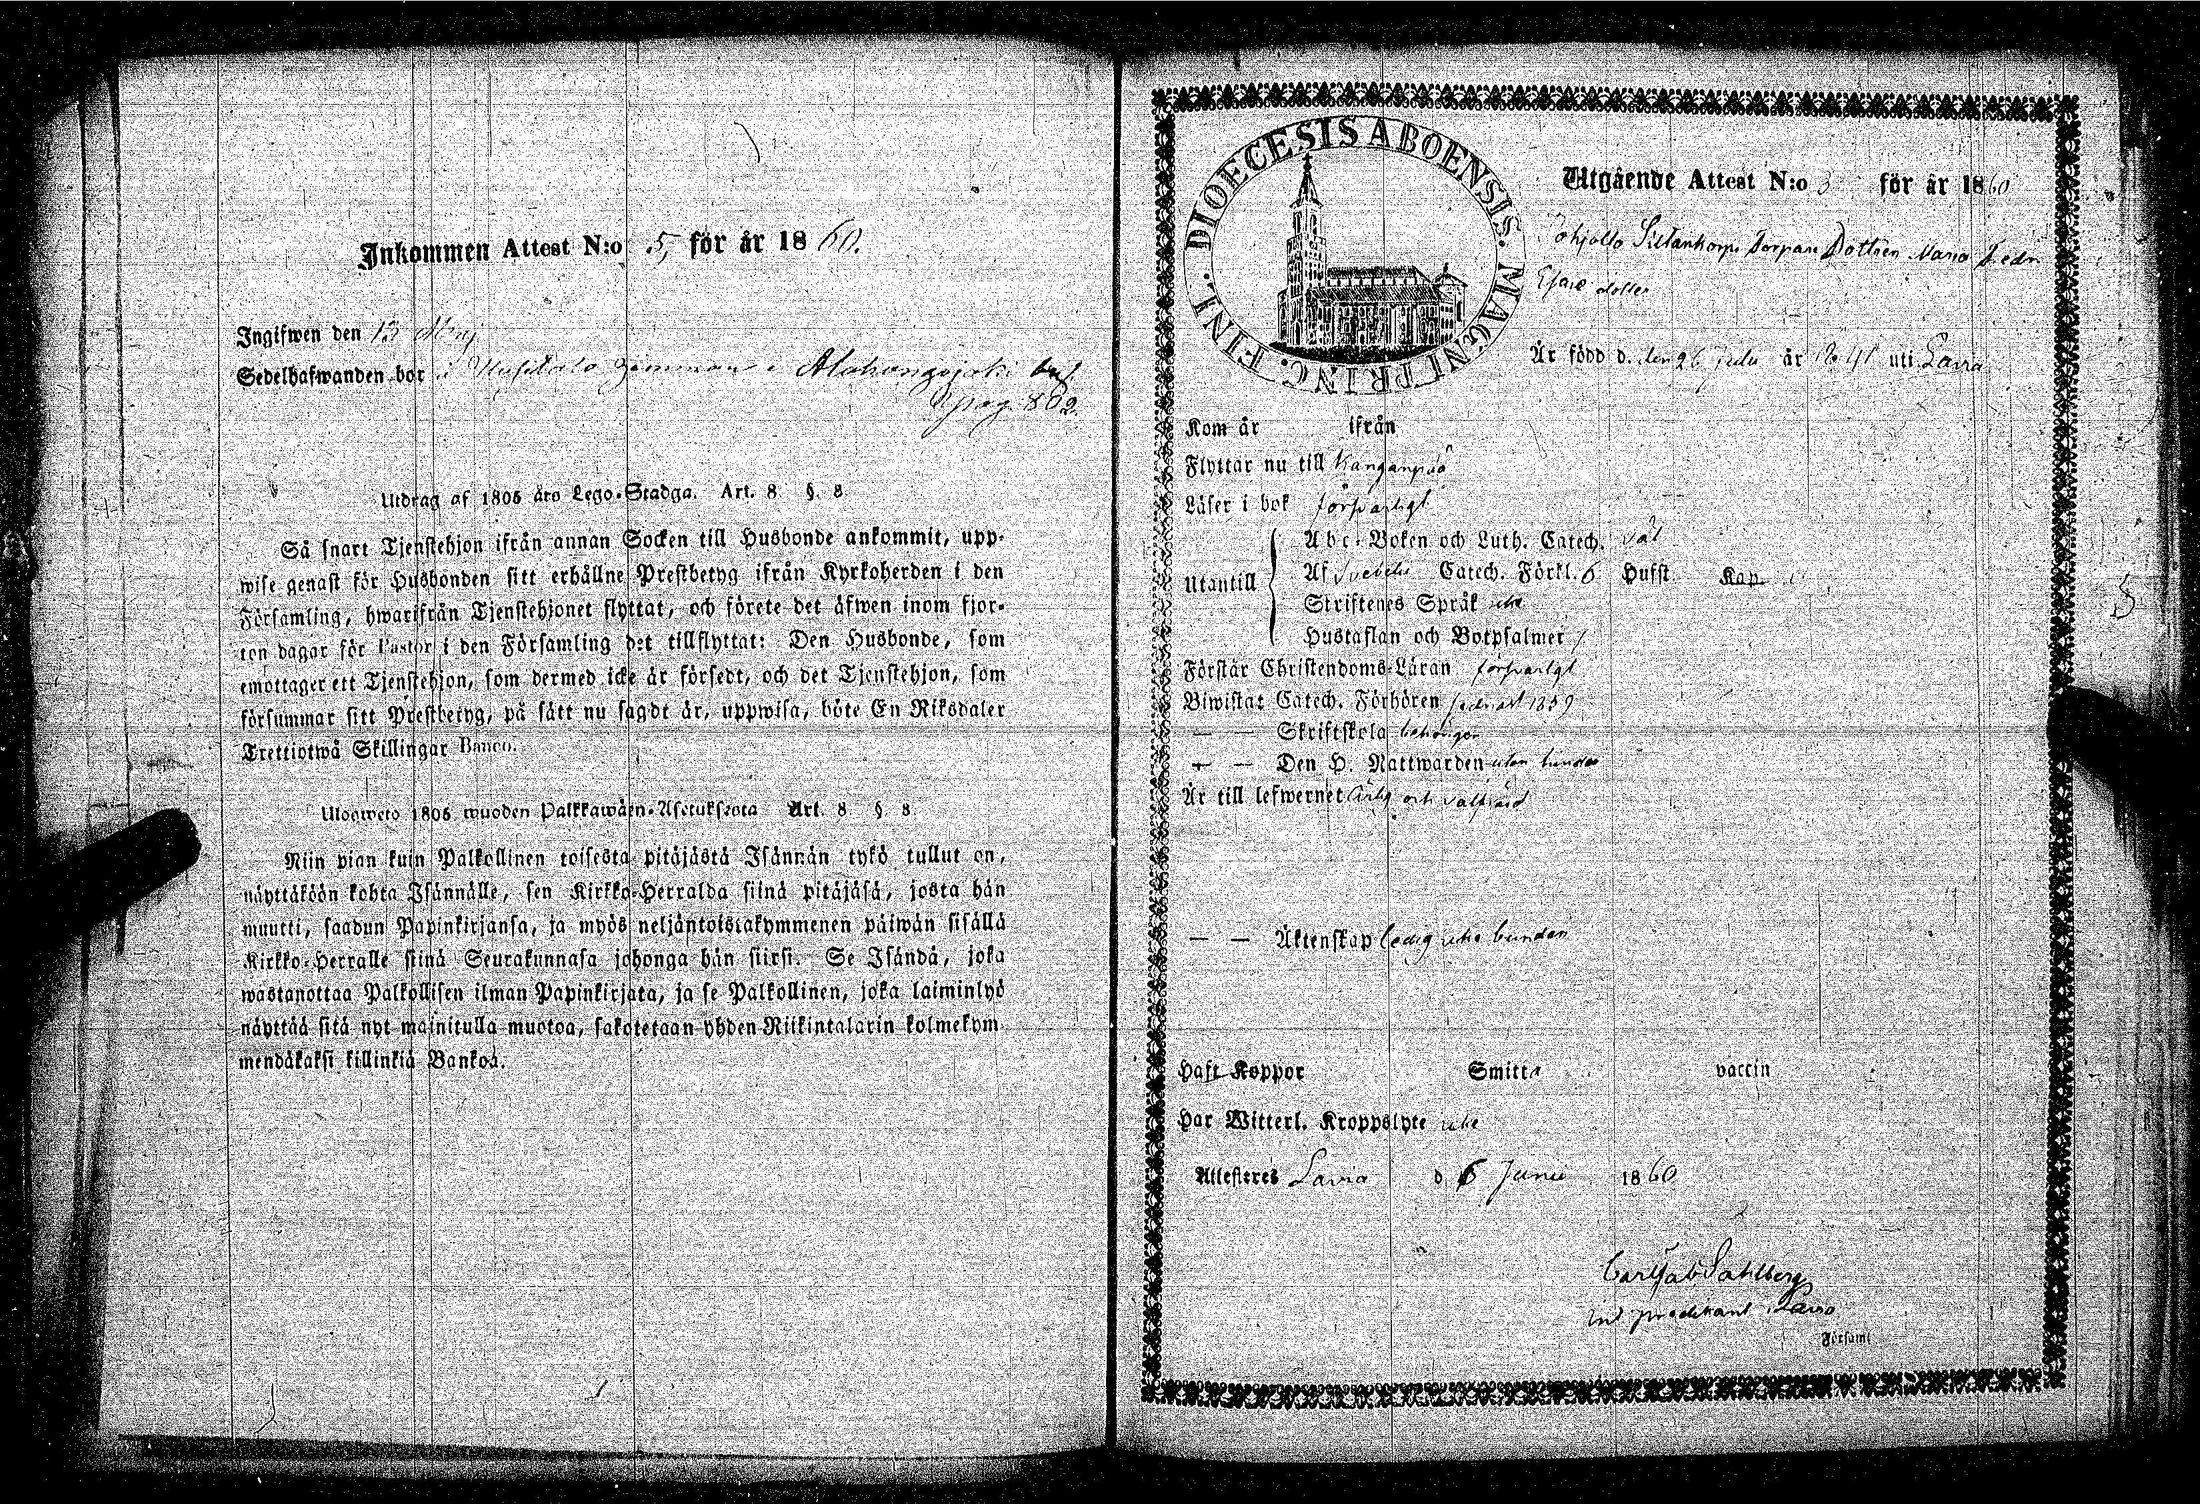 Inkommen Attest N:o 5, för år 1860.
Ingifwen den 13 Maj
Sedelhafwanden bor i
pag. 802.
Utdrag af 1805 års Lego-Stadga. Art. 8 §. 8
Så snart Tjenstehjon ifrån annan Socken till Husbonde ankommit, upp-
wise genast för Husbonden sitt erhållne Prestbetyg ifrån Kyrkoherden i den
Församling, hwarifrån Tjenstehjonet flyttat, och förete det äfwen inom fjor-
ton dagar för Pastor i den Församling det tillflyttat: Den Husbonde, som
emottager ett Tjenstehjon, som dermed icke är försedt, och det Tjenstehjon, som
försummar sitt Prestbetyg, på sätt nu sagdt är, uppwisa, böte En Riksdaler
Trettiotwå Skillingar Banco.
Ulosweto 1805 wuoden Palkkawäen-Asetuksesta Art. 8 § 8
Niin pian kuin Palkollinen toisesta pitäjästä Isännän tykö tullut on,
näyttäköön kohta Isännälle, sen Kirkko-Herralda siinä pitäjäsä, josta hän
muutti, saadun Papinkirjansa, ja myös neljäntoistakymmenen päiwän sisällä
Kirkko-Herralle siinä Seurakunnasa johonga hän siirsi. Se Isändä, joka
wastanottaa Palkollisen ilman Papinkirjata, ja se Palkollinen, joka laiminlyö
näyttää sitä nyt mainitulla muotoa, sakotetaan yhden Riikintalarin kolmekym
mendäkaksi killinkiä Bankoa.
DIOECESIS ABOENSIS. MAGNI PRINC. FINL.
Utgående Attest N:o 3 för år 1860
Torpare Dottren Maria
Är född d. den 26 Julii år 1841 uti Lavia
Kom år ifrån
Flyttar nu till Kanganpää
Läser i bok försvarligt
Abc-Boken och Luth. Catech.
Utantill
Af Svebelii Catech. Förkl. 6 Hufst. Kap
Skriftenes Språk icke
Hustaflan och Botpsalmer
Förstår Christendoms-Läran försvarligt
Biwistat Catech. Förhören sednast 1859
— — Skriftskola behörigen
— — Den H. Nattwarden utan hinder
Är till lefwernet ärlig och välfräjd
— — Äktenskap ledig icke bunden
Haft Koppor Smitta vaccin
Har Witterl. Kroppslyte icke
Attesteres Lavia d. 6 Junii 1860
Sahlberg
predikant i Lavia
Församl